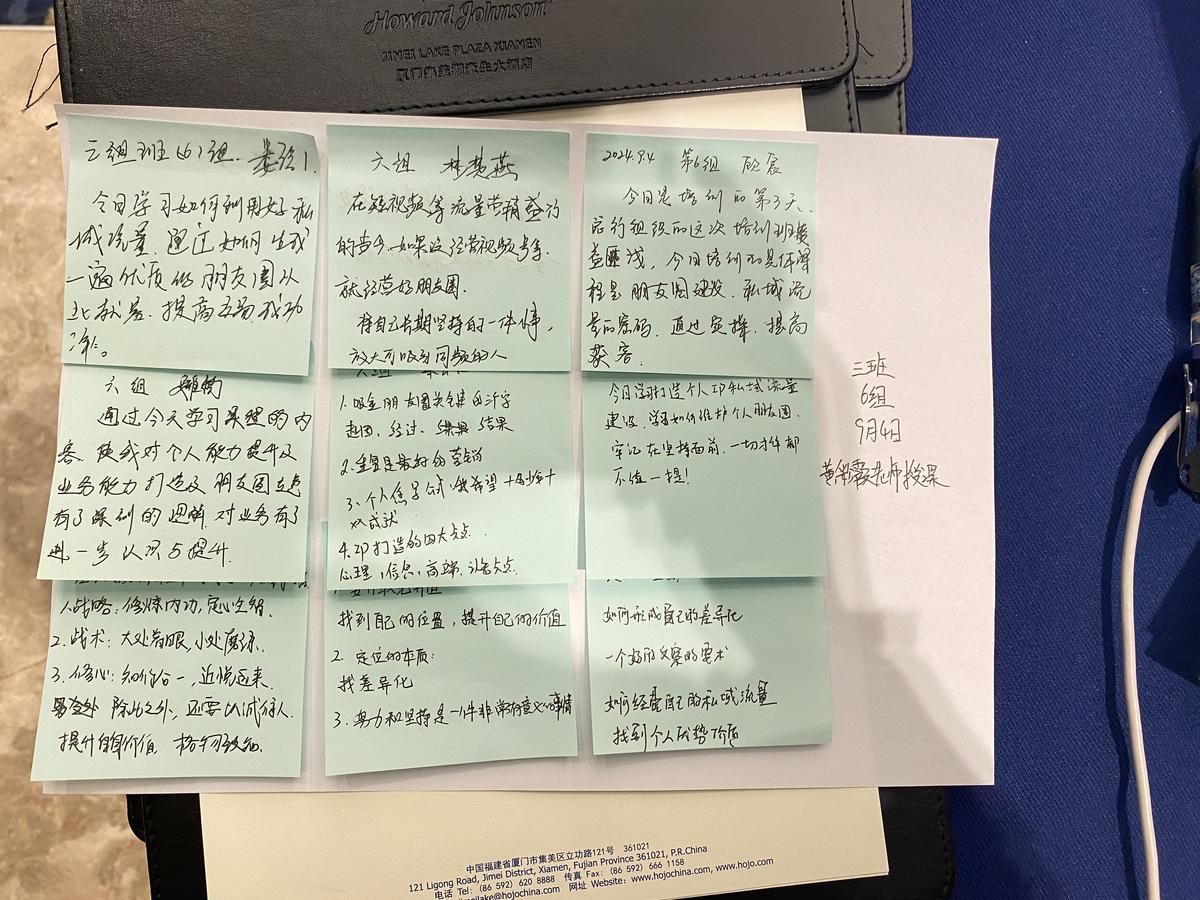 Howard Johnson
JIMEI LAKE PLAZA XIAMEN
厦门集美湖豪生大酒店
三组班(6)组.
今日学习如何利用好私
域流量. 通过如何生成
一遍优质的朋友圈以
提高交易成功
六组
在短视频等流量营销盛行
的当今.如果没经营视频号等.
就经营好朋友圈.
将自己长期坚持的一件事,
放大可吸引同频的人
2024.9.4 第6组
今日是培训的第3天.
总行组织的这次培训班授
益匪浅, 今日培训的具体课
程是朋友圈建设. 私域流
量的密码. 通过 提高
获客.
六组
通过今天学习课程的内
容. 使我对个人能力提升及
业务能力打造及朋友圈
有了深刻的理解 对业务有了
进一步认识与提升.
1.吸金朋友圈关键的三个字
起因, 经过, 结果
2. 是最好的营销
3、个人 公式:
成就
4.IP打造的四大卖点.
心理,信息,高端,
今日学习打造个人IP私域流量
建设. 学习如何维护个人朋友圈.
牢记在坚持面前. 一切才华都
不值一提!
三班
6组
9月4日
老师授课
战略: 修炼内功, 定心
2.战术: 大处着眼,小处磨练.
3.修心: 知行合一, 近悦远来.
除此之外, 还要以诚待人.
提升自身价值, 格物致知.
找到自己的位置, 提升自己的价值
2. 定位的本质:
找差异化
3. 努力和坚持是一件非常有意义的事情
如何形成自己的差异化
一个好的文案的要求
如何经营自己的私域流量
找到个人优势价值
中国福建省厦门市集美区立功路121号 361021
121 Ligong Road, Jimei District, Xiamen, Fujian Province 361021, P.R.China
电话 Tel: (86 592) 620 8888 传真 Fax: (86 592) 666 1158
jimeilake@hojochina.com 网址 Website: www.hojochina.com, www.hojo.com